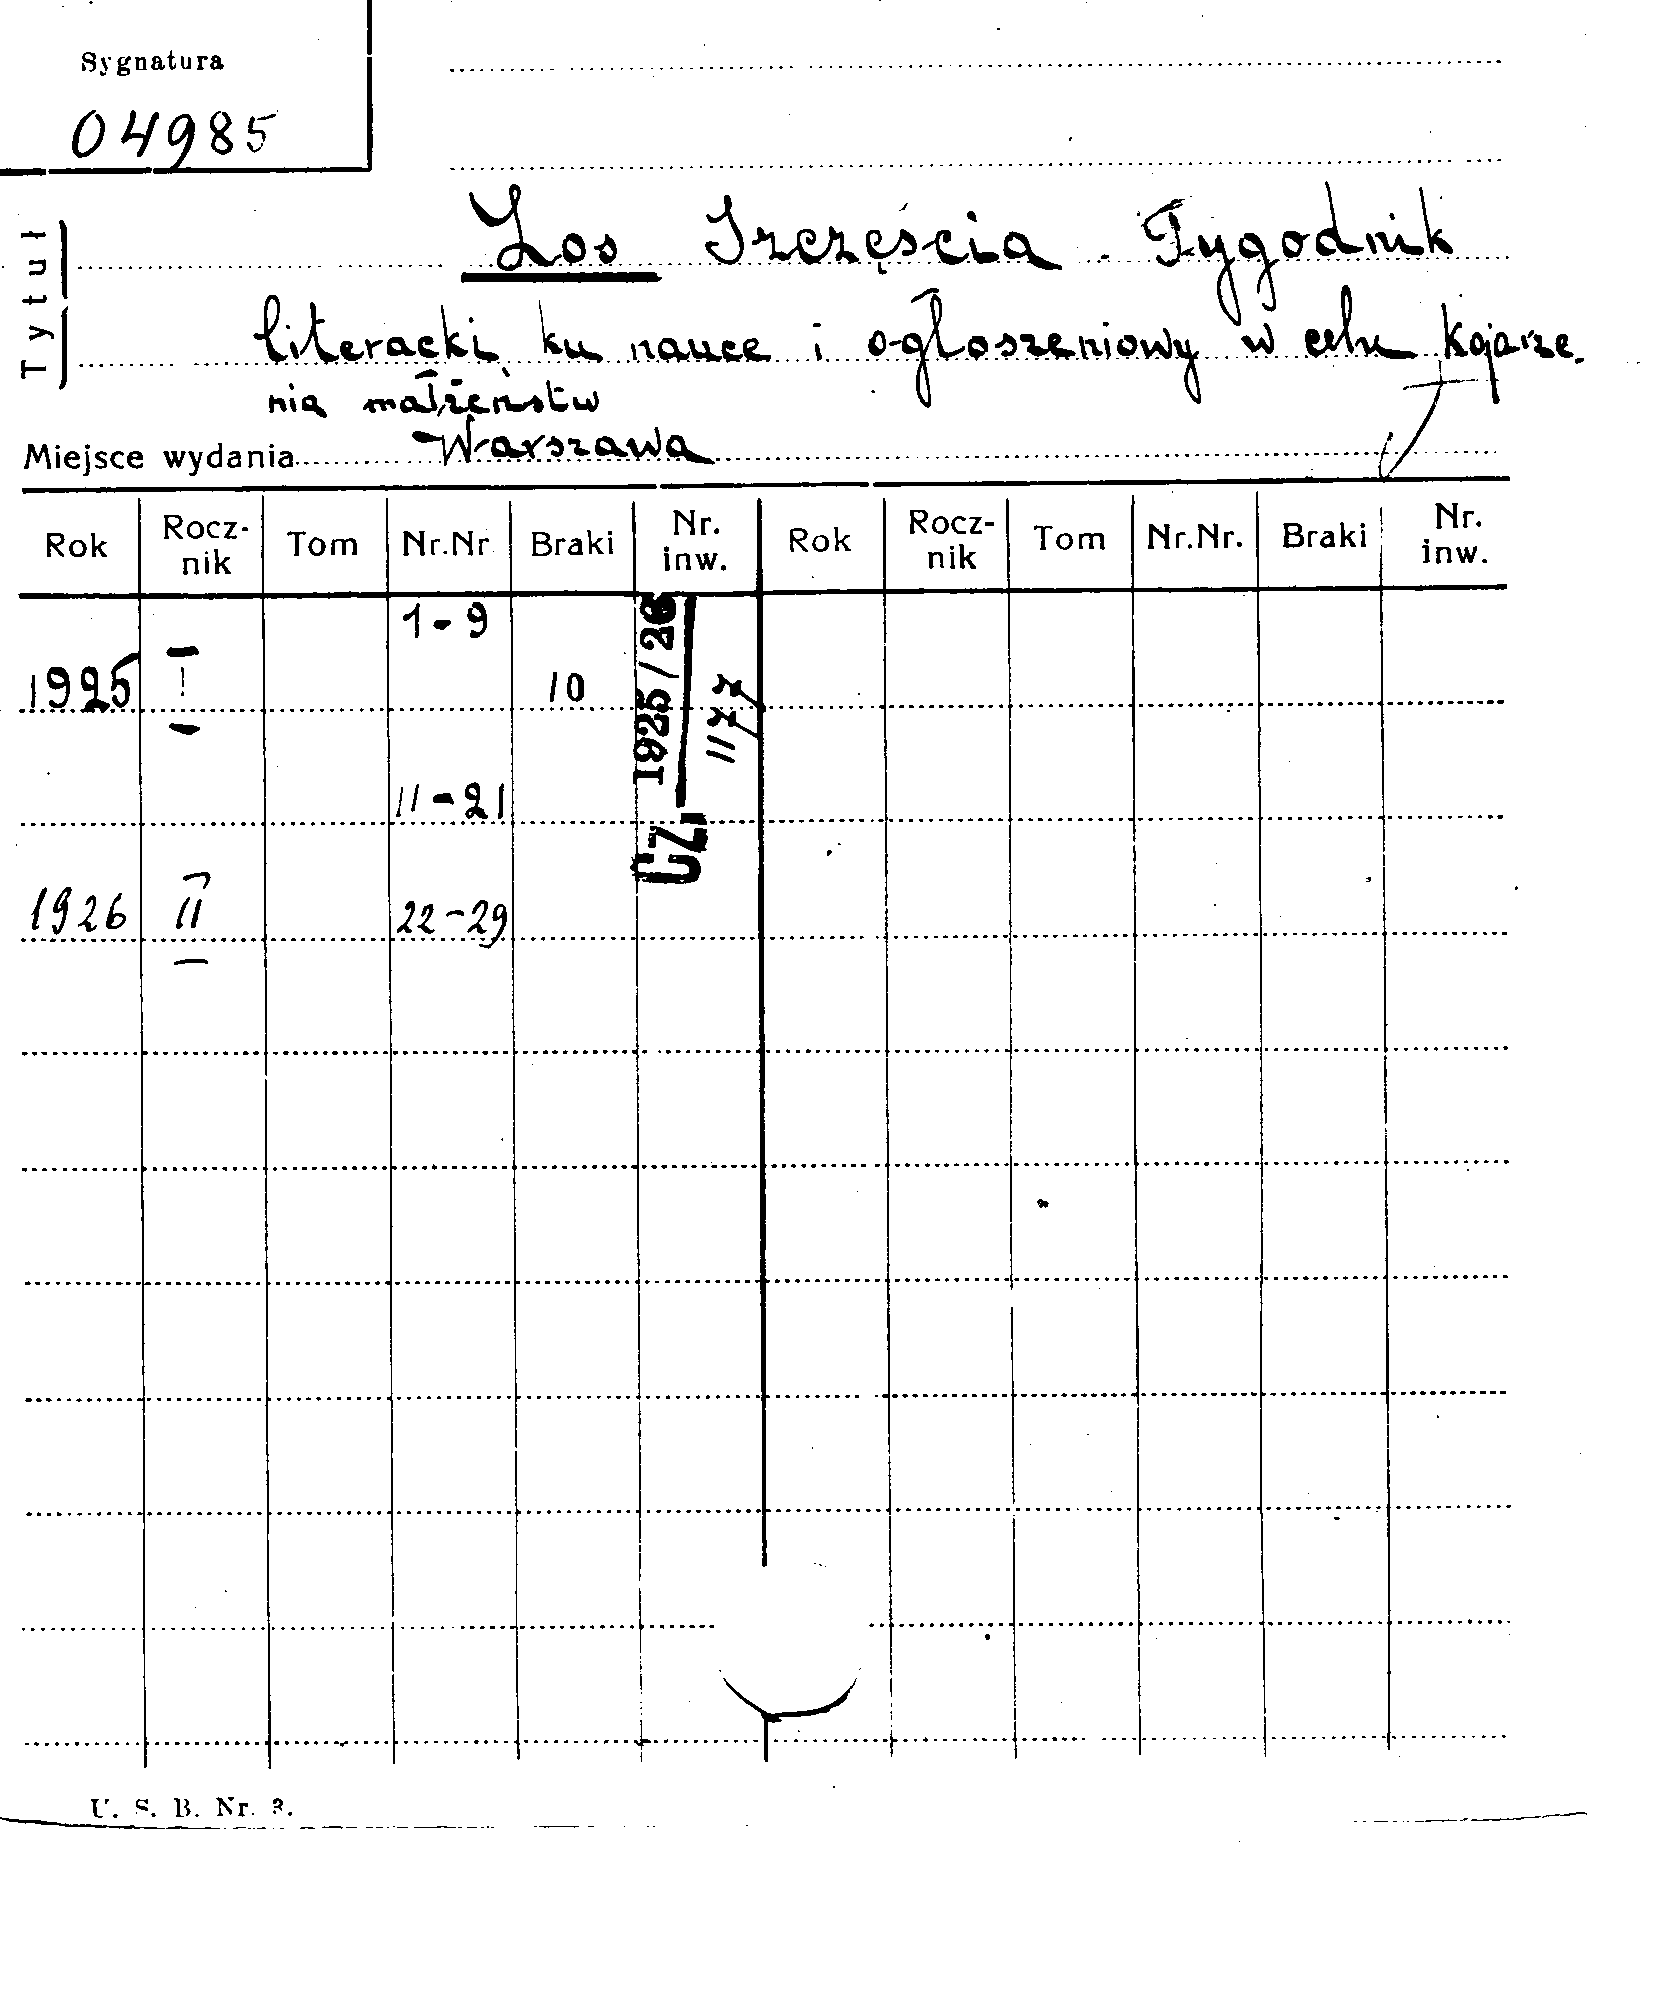 Sygnatura
04985
Tytuł
Los Szczęścia. Tygodnik
literacki ku nauce i ogłoszeniowy w celu kojarze-
nia małżeństw
Miejsce wydania Warszawa
Rok Rocz-nik Tom Nr.Nr Braki Nr. inw. Rok Rocz-nik Tom Nr.Nr. Braki Nr. inw.
1-9
1925 I 10
11-21
1926 II 22-29
Cz. 1925/26
1177
U. S. B. Nr. 3.